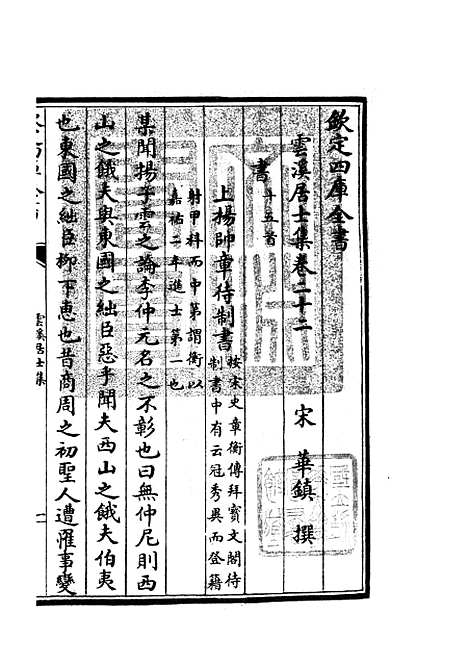 欽定四庫全書
雲溪居士集卷二十二
宋 華鎮 撰
書十五首
上揚帥章待制書
按宋史章衡傳拜寳文閣待
制書中有云冠秀異而登籍
射甲科而中第謂衡以
嘉祐二年進士第一也
某聞揚子雲之論李仲元名之不彰也曰無仲尼則西
山之餓夫與東國之絀臣惡乎聞夫西山之餓夫伯夷
也東國之絀臣柳下恵也昔商周之初聖人遭罹事變
雲溪居士集
一